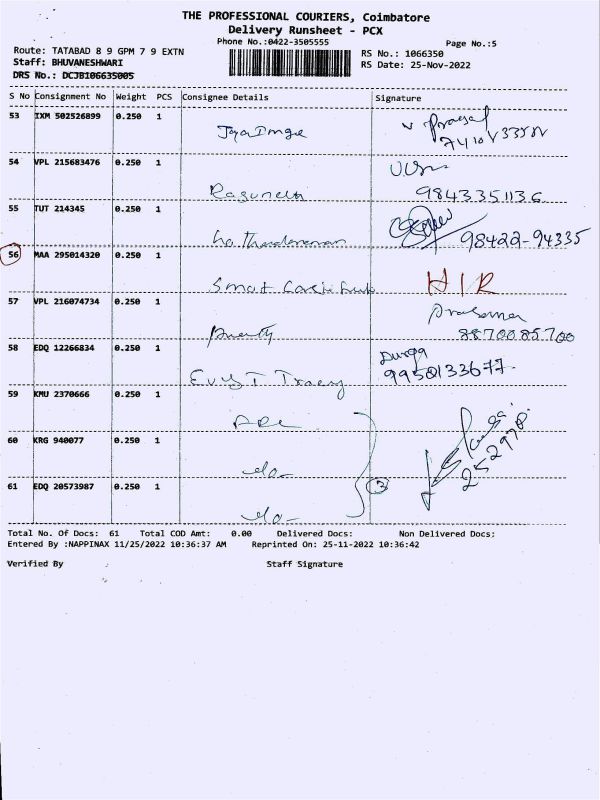 THE PROFESSIONAL COURIERS, Coimbatore
Delivery Runsheet - PCX
Phone No.:0422-3505555
Page No.:5
Route: TATABAD 8 9 GPM 7 9 EXTN
RS No.: 1066350
Staff: BHUVANESHWARI
RS Date: 25-Nov-2022
DRS No.: DCJB106635005
S No Consignment No Weight PCS Consignee Details Signature
53 IXM 502526899 0.250 1
54 VPL 215683476 0.250 1
9843351136
55 TUT 214345 0.250 1
98422-94335
56 MAA 295014320 0.250 1
57 VPL 216074734 0.250 1
8870085700
58 EDQ 12266834 0.250 1
Durga
9950133677
59 KMU 2370666 0.250 1
60 KRG 940077 0.250 1
-do-
252978
61 EDQ 20573987 0.250 1
3
-do-
Total No. Of Docs: 61 Total COD Amt: 0.00 Delivered Docs: Non Delivered Docs:
Entered By :NAPPINAX 11/25/2022 10:36:37 AM Reprinted On: 25-11-2022 10:36:42
Verified By Staff Signature